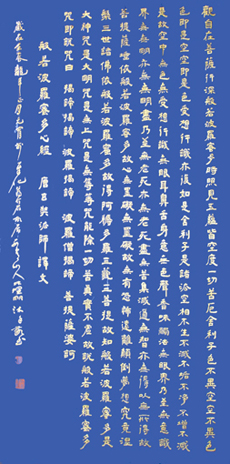 觀自在菩薩行深般若波羅蜜多時照見五蘊皆空度一切苦厄舍利子色不異空空不異色
色即是空空即是色受想行識亦復如是舍利子是諸法空相不生不滅不垢不淨不增不減
是故空中無色無受想行識無眼耳鼻舌身意無色聲香味觸法無眼界乃至無意識
界無無明亦無無明盡乃至無老死亦無老死盡無苦集滅道無智亦無得以無所得故
菩提薩埵依般若波羅蜜多故心無罣礙無罣礙故無有恐怖遠離顛倒夢想究竟涅
槃三世諸佛依般若波羅蜜多故得阿耨多羅三藐三菩提故知般若波羅蜜多是
大神咒是大明咒是無上咒是無等等咒能除一切苦真實不虛故說般若波羅蜜多
咒即說咒曰 揭諦揭諦 波羅揭諦 波羅僧揭諦 菩提薩婆訶
般若波羅蜜多心經 唐三奘法師譯文
歲在